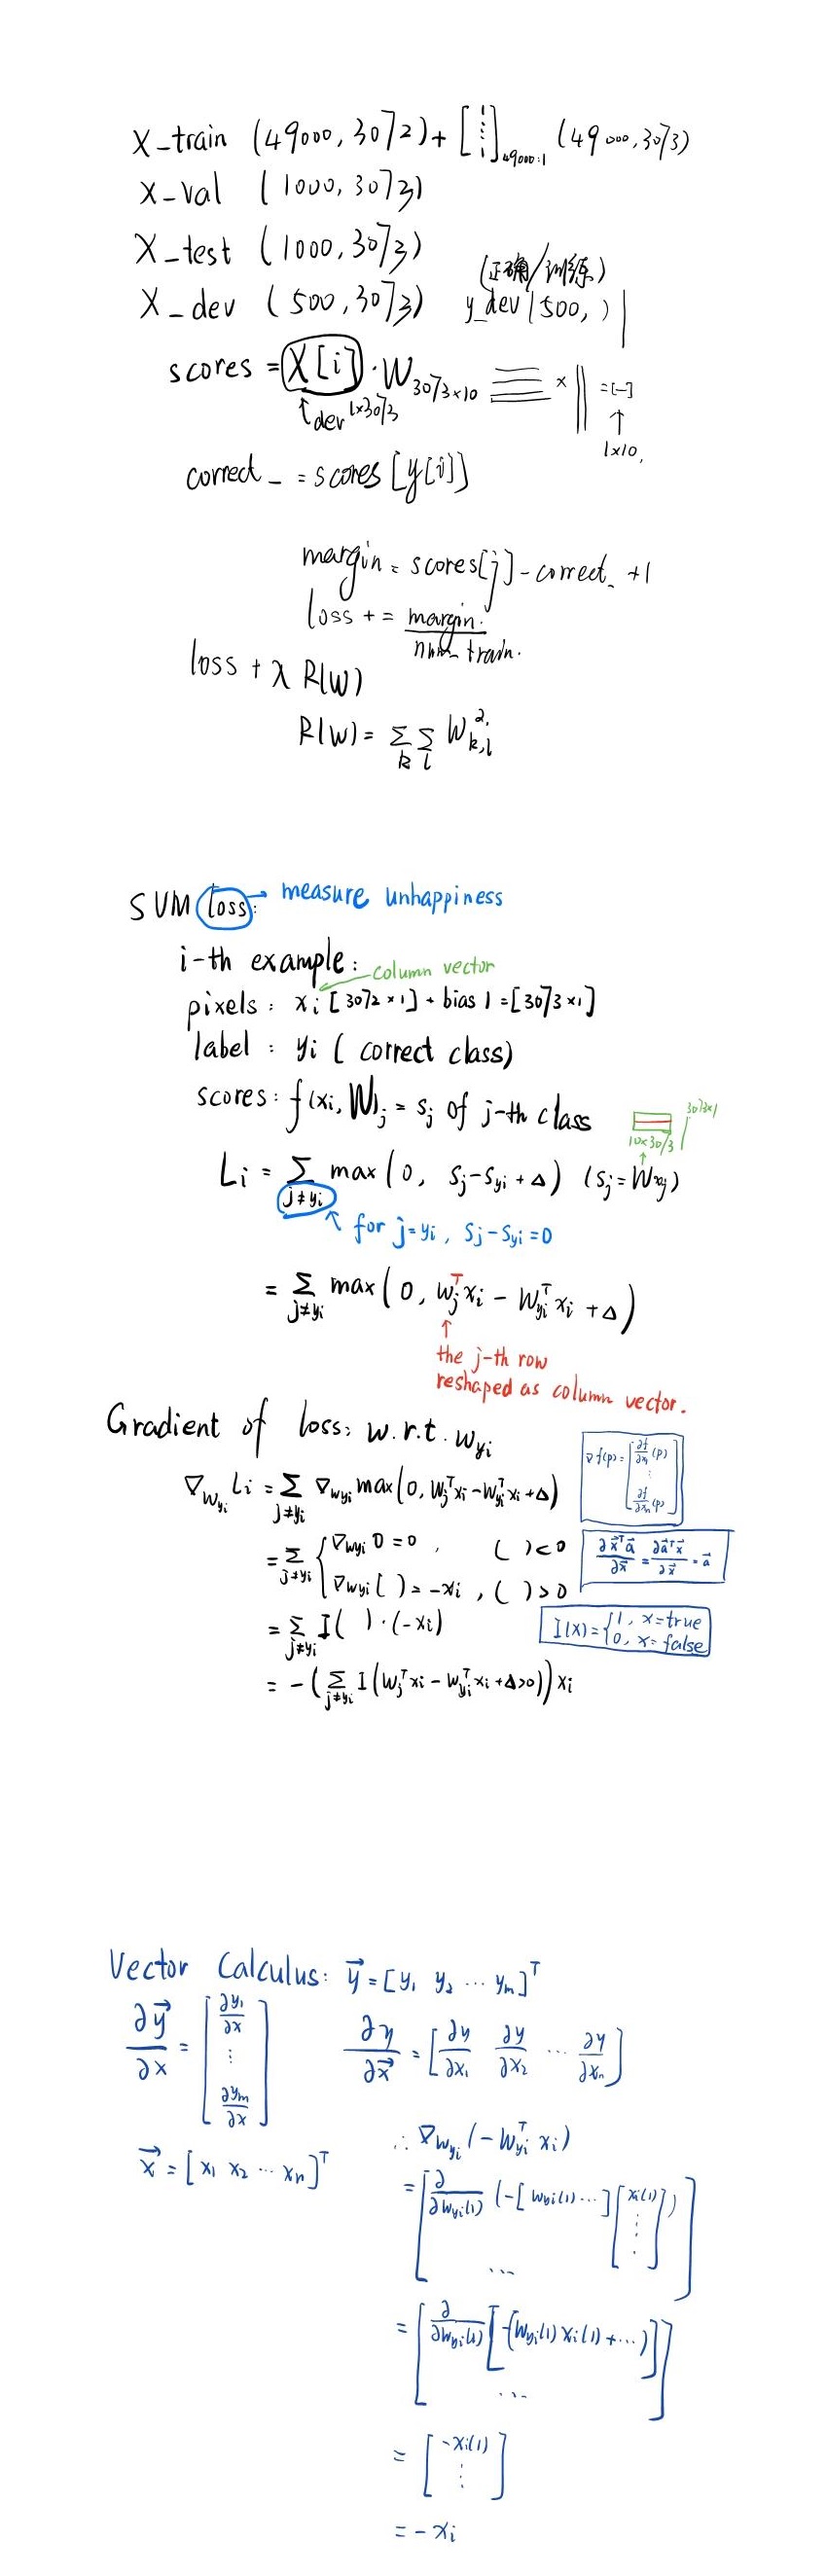 X_train (49000, 3072) + [1 ⋮ 1]49000×1 (49000, 3073)
X_val (1000, 3073)
X_test (1000, 3073)
(正确/训练)
X_dev (500, 3073) y_dev (500, )
scores = X[i] · W3073×10 × = [—]
↑dev 1×3073 ↑
1×10,
correct_ = scores[y[i]]
margin = scores[j] - correct_ +1
loss += margin. / num_train.
loss + λ R(W)
R(W) = Σk Σl W²k,l
SVM loss: → measure unhappiness
i-th example:
column vector
pixels: xi [3072×1] + bias 1 = [3073×1]
label: yi (correct class)
scores: f(xi, W)j = sj of j-th class
3073×1
10×3073
Li = Σj≠yi max(0, sj - syi + Δ) (sj = Wxj)
↑ for j=yi, sj - syi = 0
= Σj≠yi max(0, wjᵀxi - wyiᵀxi + Δ)
↑
the j-th row
reshaped as column vector.
Gradient of loss: w.r.t. wyi
∇f(p) = [∂f/∂x1(p) ⋮ ∂f/∂xn(p)]
∇wyi Li = Σj≠yi ∇wyi max(0, wjᵀxi - wyiᵀxi + Δ)
= Σj≠yi { ∇wyi 0 = 0, ( ) < 0
∇wyi ( ) = -xi, ( ) > 0
∂x⃗ᵀa⃗/∂x⃗ = ∂a⃗ᵀx⃗/∂x⃗ = a⃗
= Σj≠yi I( ) · (-xi)
I(x) = { 1, x=true
0, x=false
= -(Σj≠yi I(wjᵀxi - wyiᵀxi + Δ>0)) xi
Vector Calculus: y⃗ = [y1 y2 ⋯ ym]ᵀ
∂y⃗/∂x = [∂y1/∂x ⋮ ∂ym/∂x] ∂y/∂x⃗ = [∂y/∂x1 ∂y/∂x2 ⋯ ∂y/∂xn]
x⃗ = [x1 x2 ⋯ xn]ᵀ
∴ ∇wyi (-wyiᵀ xi)
= [∂/∂wyi(1) (-[wyi(1) ⋯] [xi(1) ⋮]) ⋯]
= [∂/∂wyi(1) [-(wyi(1) xi(1) + ⋯)] ⋯]
= [-xi(1) ⋮]
= -xi